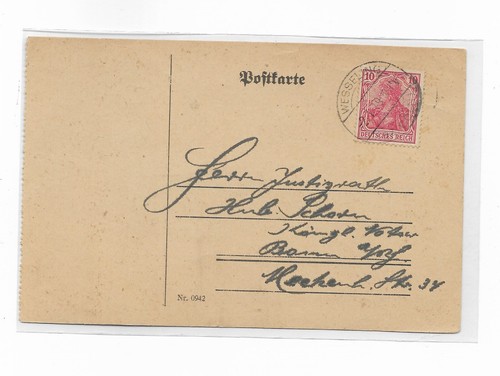 Postkarte
WESSELING
10 10
DEUTSCHES REICH
Herrn Justizrath
Hub. Schorn
Königl. Notar
Bonn a/Rh
Meckenh. Str. 34
Nr. 0942